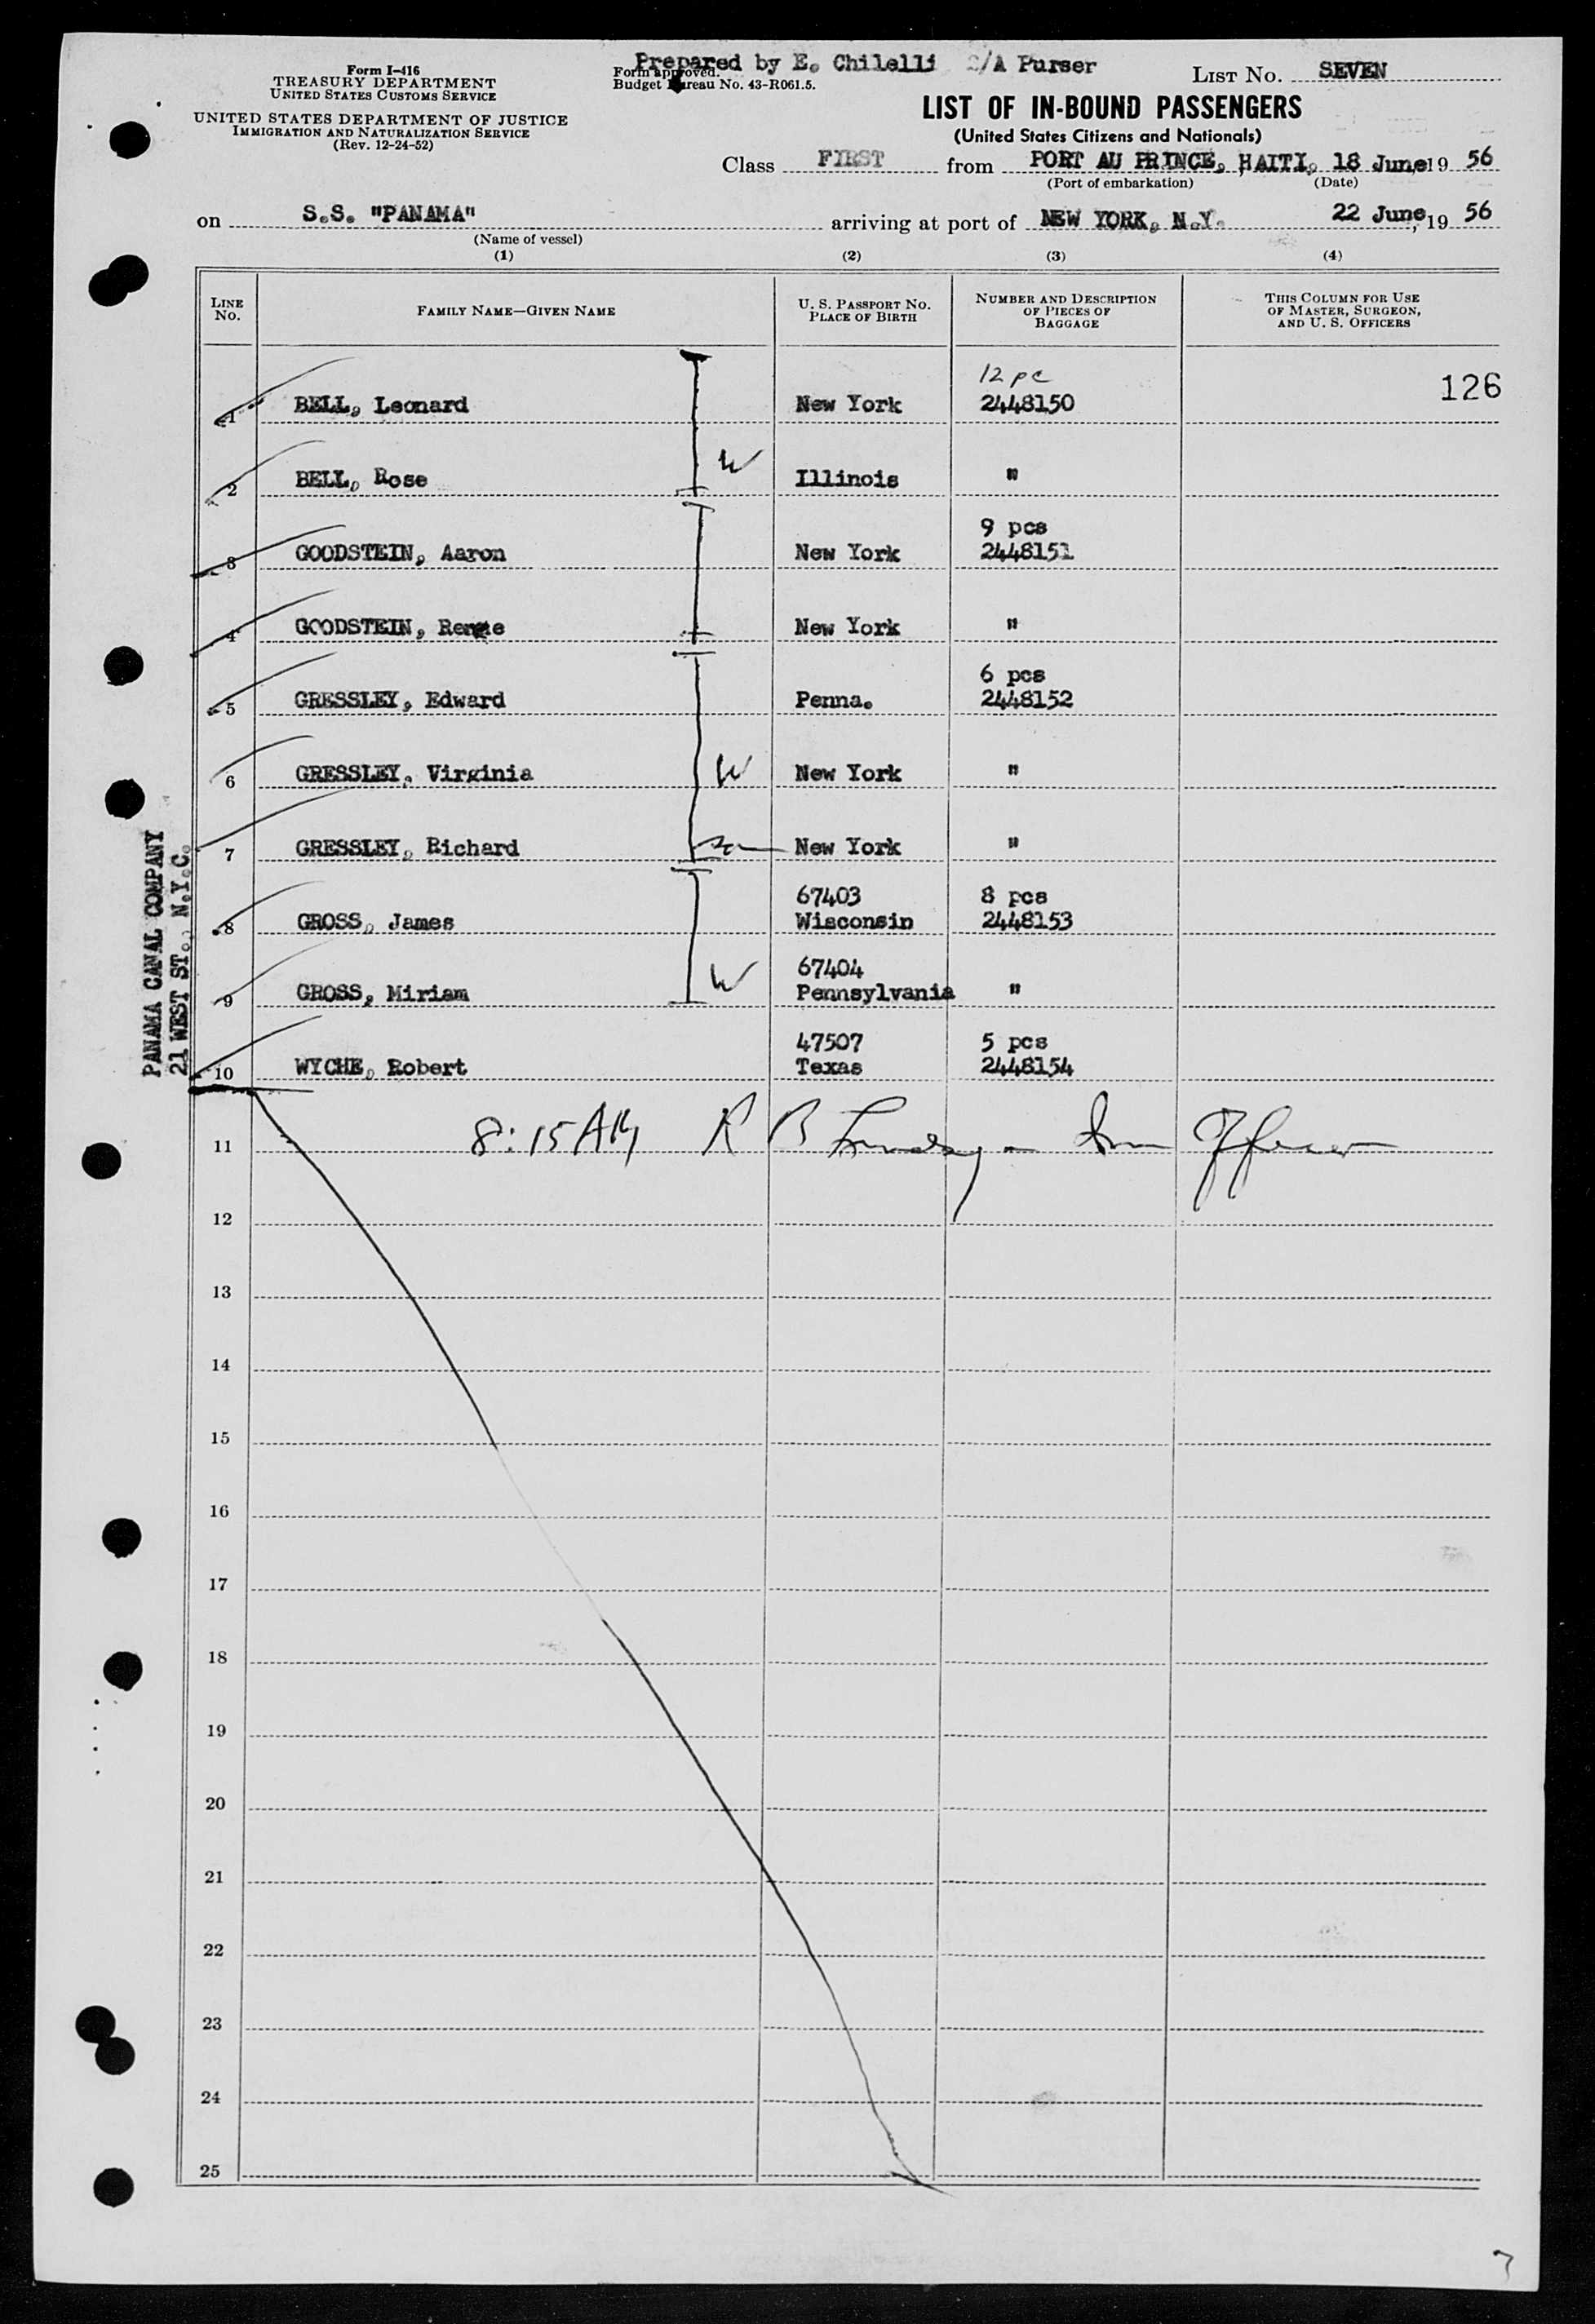 Prepared by E. Chilelli S/A Purser
Form I-416
TREASURY DEPARTMENT
UNITED STATES CUSTOMS SERVICE
UNITED STATES DEPARTMENT OF JUSTICE
IMMIGRATION AND NATURALIZATION SERVICE
(Rev. 12-24-52)
Form approved.
Budget Bureau No. 43-R061.5.
LIST No. SEVEN
LIST OF IN-BOUND PASSENGERS
(United States Citizens and Nationals)
Class FIRST from PORT AU PRINCE, HAITI, 18 June 19 56
(Port of embarkation) (Date)
on S.S. "PANAMA" arriving at port of NEW YORK, N.Y. 22 June, 19 56
(Name of vessel)
(1) (2) (3) (4)
LINE No. FAMILY NAME—GIVEN NAME U. S. PASSPORT No. PLACE OF BIRTH NUMBER AND DESCRIPTION OF PIECES OF BAGGAGE THIS COLUMN FOR USE OF MASTER, SURGEON, AND U. S. OFFICERS
12 pc
1 BELL, Leonard New York 2448150 126
W
2 BELL, Rose Illinois "
9 pcs
3 GOODSTEIN, Aaron New York 2448151
4 GOODSTEIN, New York "
6 pcs
5 GRESSLEY, Edward Penna. 2448152
6 GRESSLEY, Virginia W New York "
7 GRESSLEY, Richard New York "
67403 8 pcs
8 GROSS, James Wisconsin 2448153
67404
9 GROSS, Miriam W Pennsylvania "
47507 5 pcs
10 WYCHE, Robert Texas 2448154
8:15 AM R B Lindsay - Imm Officer
11
12
13
14
15
16
17
18
19
20
21
22
23
24
25
PANAMA CANAL COMPANY
21 WEST ST., N.Y.C.
7